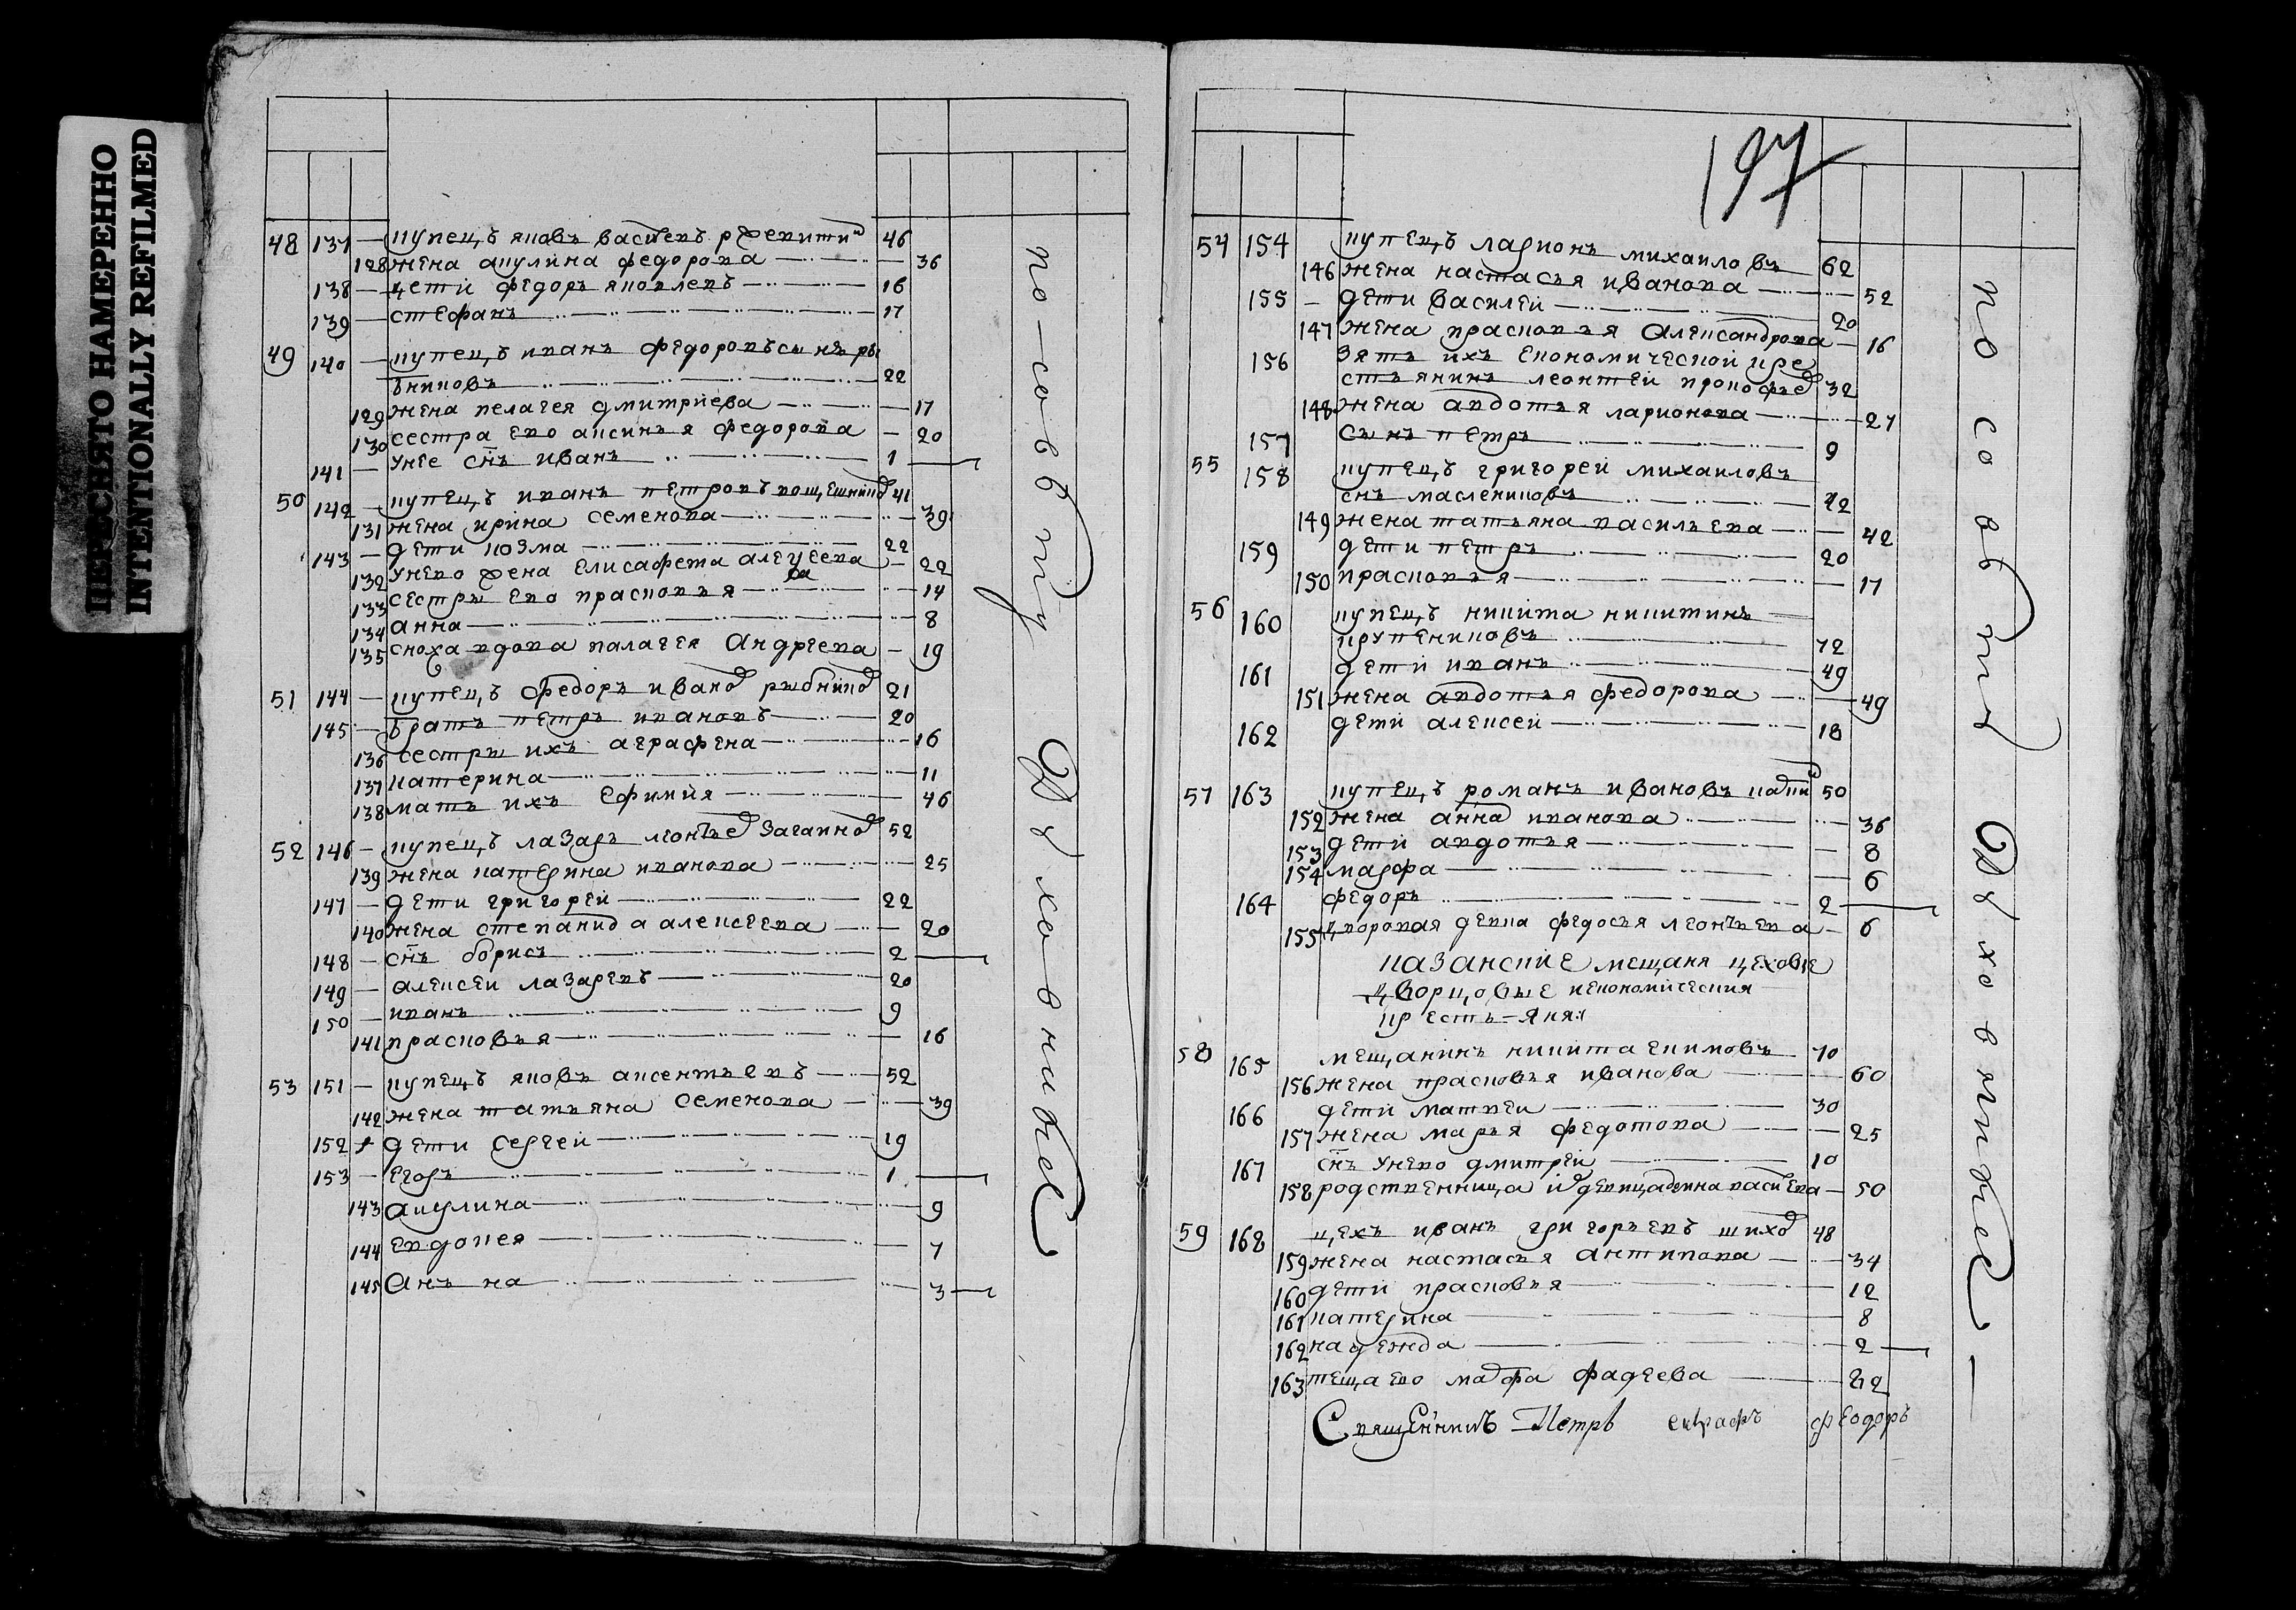 ПЕРЕСНЯТО НАМЕРЕННО
INTENTIONALLY REFILMED
48 137 — купецъ яковъ васильевъ 46
128 жена акулина федорова — 36
138 — дети федоръ яковлевъ — 16
139 — стефанъ — 17
49 140 — купецъ иванъ федоровъ сынъ ры
бниковъ — 22
129 жена пелагея дмитриева — 17
130 сестра ево аксинья федорова — 20
141 — унее снъ иванъ — 1
50 142 — купецъ иванъ петровъ 41
131 жена ирина семенова — 39
143 — дети козма — 22
132 унево жена елисафета алексеева — 22
133 сестры ево прасковья — 14
134 анна — 8
135 сноха вдова палагея андреева — 19
51 144 — купецъ федоръ иванов рыбников 21
145 — братъ петръ ивановъ — 20
136 сестры ихъ аграфена — 16
137 катерина — 11
138 мать ихъ ефимия — 46
52 146 — купецъ лазарь леонтьев 52
139 жена катерина иванова — 25
147 — дети григорей — 22
140 жена степанида алексеева — 20
148 — снъ борисъ — 2
149 — алексеи лазаревъ — 20
150 — иванъ — 9
141 прасковья — 16
53 151 — купецъ яковъ аксентьевъ — 52
142 жена татьяна семенова — 39
152 дети сергеи — 19
153 — егоръ — 1
143 акулина — 9
144 евдокея — 7
145 анъна — 3
по-совѣту Духовникѣ
197
54 154 купецъ ларионъ михаиловъ 62
146 жена настасья иванова — 52
155 — дети василеи — 20
147 жена прасковья александрова — 16
156 зять ихъ економической кре
стьянинъ леонтеи прокофьев 32
148 жена авдотья ларионова — 27
157 сынъ петръ — 9
55 158 купецъ григореи михаиловъ
снъ маслениковъ — 42
149 жена татьяна васильева — 42
159 дети петръ — 20
150 прасковья — 17
56 160 купецъ никита никитинъ —
крупениковъ — 72
161 дети иванъ — 49
151 жена авдотья федорова — 49
162 дети алексеи — 18
57 163 купецъ романъ ивановъ 50
152 жена анна иванова — 36
153 дети авдотья — 8
154 марфа — 6
164 федоръ — 2
155 дворовая девка федосья леонтьева — 6
казанские мещаня цеховые
дворцовые иекономическия
крестьяня:
58 165 мещанинъ никита екимовъ 70
156 жена прасковья иванова — 60
166 дети матвеи — 30
157 жена марья федотова — 25
167 снъ унево дмитреи — 10
158 родственница 50
59 168 цехъ иванъ григорьевъ 48
159 жена настасья антипова — 34
160 дети прасковья — 12
161 катерина — 8
162 надежда — 2
163 теща ево марфа фадеева —
по совѣту Духовникѣ —
Священникъ Петръ феодоръ